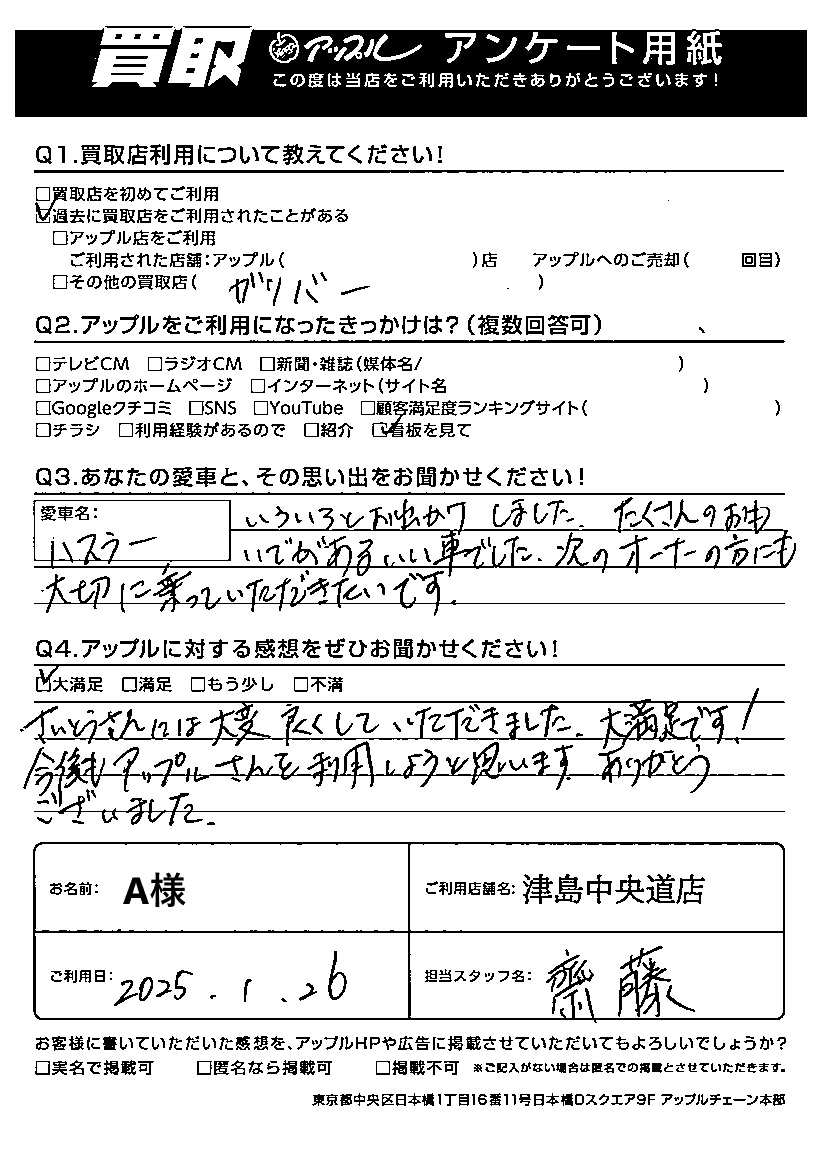 買取 アップル アンケート用紙
この度は当店をご利用いただきありがとうございます!
Q1.買取店利用について教えてください!
□買取店を初めてご利用
☑過去に買取店をご利用されたことがある
□アップル店をご利用
ご利用された店舗:アップル( )店 アップルへのご売却( 回目)
□その他の買取店( ガリバー )
Q2.アップルをご利用になったきっかけは?(複数回答可)
□テレビCM □ラジオCM □新聞・雑誌(媒体名/ )
□アップルのホームページ □インターネット(サイト名 )
□Googleクチコミ □SNS □YouTube □顧客満足度ランキングサイト( )
□チラシ □利用経験があるので □紹介 ☑看板を見て
Q3.あなたの愛車と、その思い出をお聞かせください!
愛車名:
ハスラー
いろいろとお出かけしました。たくさんのおも
いでがあるいい車でした。次のオーナーの方にも
大切に乗っていただきたいです。
Q4.アップルに対する感想をぜひお聞かせください!
☑大満足 □満足 □もう少し □不満
さいとうさんには大変良くしていただきました。大満足です!
今後もアップルさんを利用しようと思います。ありがとう
ございました。
お名前: A様 ご利用店舗名: 津島中央道店
ご利用日: 2025.1.26 担当スタッフ名: 齋藤
お客様に書いていただいた感想を、アップルHPや広告に掲載させていただいてもよろしいでしょうか?
□実名で掲載可 □匿名なら掲載可 □掲載不可 ※ご記入がない場合は匿名での掲載とさせていただきます。
東京都中央区日本橋1丁目16番11号日本橋Dスクエア9F アップルチェーン本部